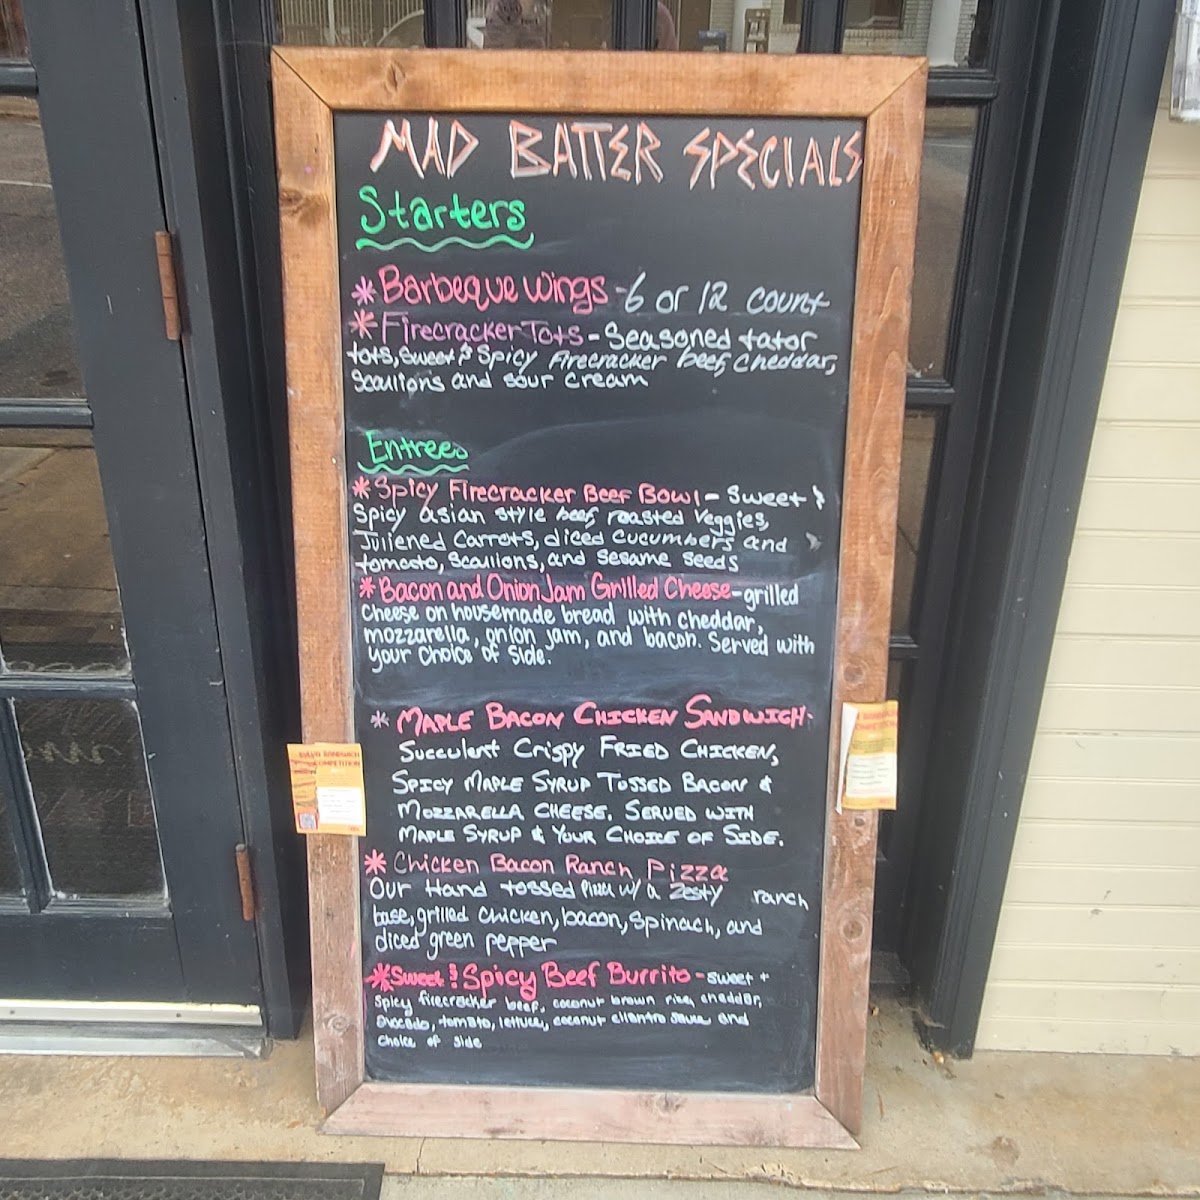 MAD BATTER SPECIALS
Starters
* Barbeque Wings - 6 or 12 count
* Firecracker Tots - Seasoned tator
tots, sweet & Spicy Firecracker beef, cheddar,
Scallions and sour cream
Entrees
* Spicy Firecracker Beef Bowl - Sweet &
Spicy asian style beef, roasted veggies,
Juliened Carrots, diced cucumbers and
tomato, Scallions, and sesame seeds
* Bacon and Onion Jam Grilled Cheese - grilled
cheese on housemade bread with cheddar,
mozzarella, onion jam, and bacon. Served with
your choice of side.
* MAPLE BACON CHICKEN SANDWICH-
SUCCULENT CRISPY FRIED CHICKEN,
SPICY MAPLE SYRUP TOSSED BACON &
MOZZARELLA CHEESE. SERVED WITH
MAPLE SYRUP & YOUR CHOICE OF SIDE.
* Chicken Bacon Ranch Pizza
Our Hand tossed Pizza w/ a zesty ranch
base, grilled chicken, bacon, spinach, and
diced green pepper
* Sweet & Spicy Beef Burrito - sweet +
spicy firecracker beef, coconut brown rice, cheddar,
avocado, tomato, lettuce, coconut cilantro sauce and
choice of side
SANDWICH
COMPETITION